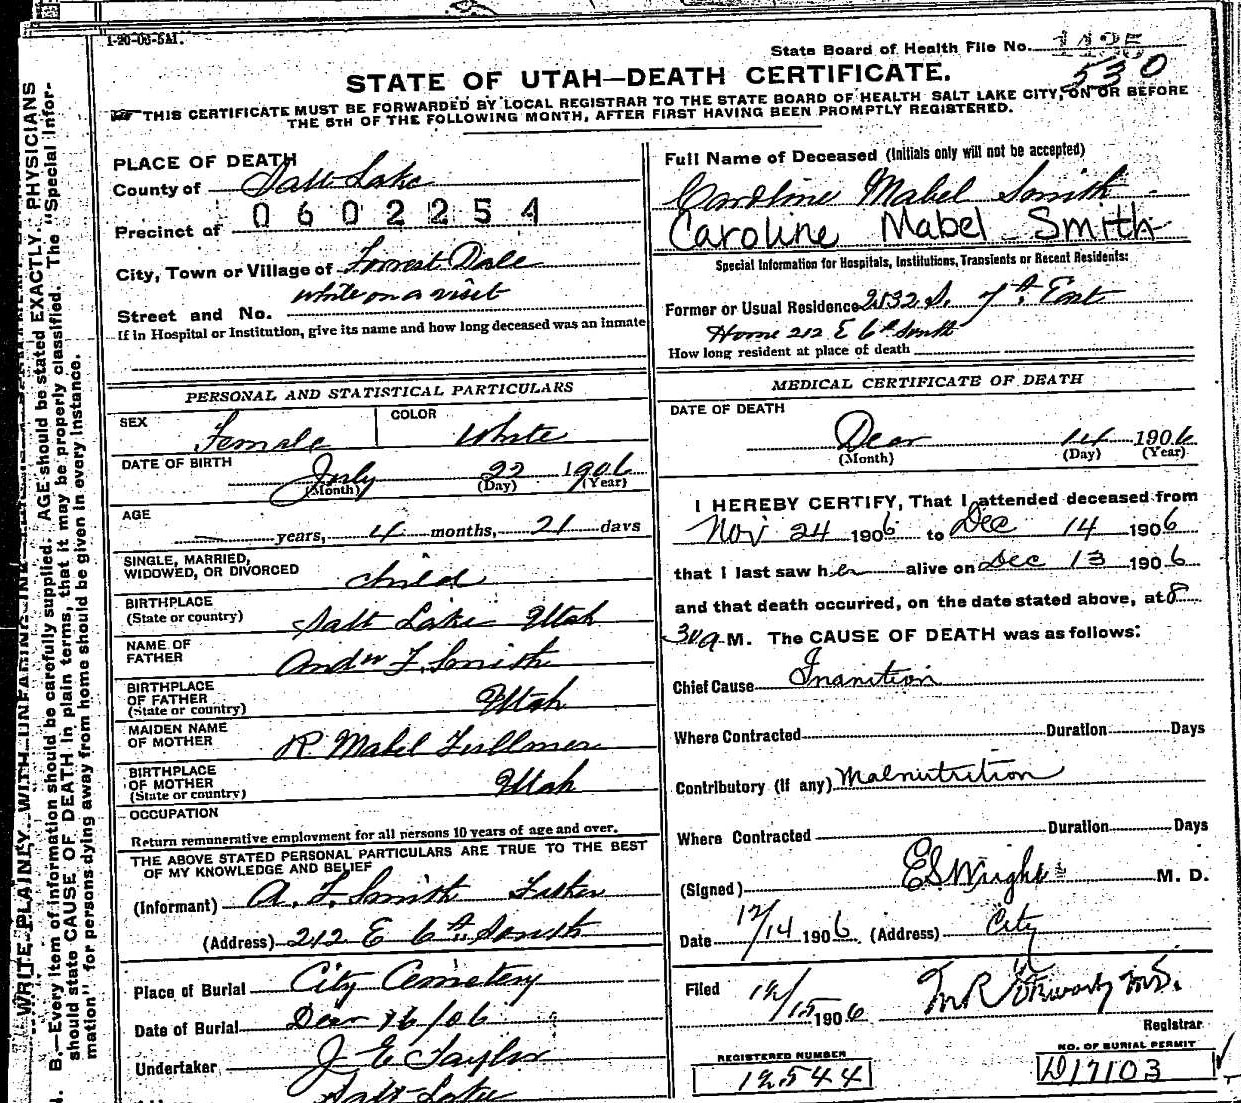 1-20-06-5M.
State Board of Health File No. 1425
530
STATE OF UTAH—DEATH CERTIFICATE.
THIS CERTIFICATE MUST BE FORWARDED BY LOCAL REGISTRAR TO THE STATE BOARD OF HEALTH SALT LAKE CITY, ON OR BEFORE
THE 5TH OF THE FOLLOWING MONTH, AFTER FIRST HAVING BEEN PROMPTLY REGISTERED.
PLACE OF DEATH
County of Salt Lake
0602254
Precinct of
City, Town or Village of Forrest Dale
while on a visit
Street and No.
If in Hospital or Institution, give its name and how long deceased was an inmate
Full Name of Deceased (Initials only will not be accepted)
Caroline Mabel Smith
Caroline Mabel Smith
Special Information for Hospitals, Institutions, Transients or Recent Residents:
Former or Usual Residence 2532 S. 7th East
Home 212 E 6th South
How long resident at place of death
PERSONAL AND STATISTICAL PARTICULARS
SEX Female COLOR White
DATE OF BIRTH July 22 1906
(Month) (Day) (Year)
AGE
years, 4 months, 21 days
SINGLE, MARRIED,
WIDOWED, OR DIVORCED child
BIRTHPLACE
(State or country) Salt Lake Utah
NAME OF
FATHER Andw F. Smith
BIRTHPLACE
OF FATHER
(State or country) Utah
MAIDEN NAME
OF MOTHER R Mabel Fullmer
BIRTHPLACE
OF MOTHER
(State or country) Utah
OCCUPATION
Return remunerative employment for all persons 10 years of age and over.
THE ABOVE STATED PERSONAL PARTICULARS ARE TRUE TO THE BEST
OF MY KNOWLEDGE AND BELIEF
(Informant) A. F. Smith Father
(Address) 212 E 6th South
Place of Burial City Cemetery
Date of Burial Decr 16/06
Undertaker J E Taylor
Salt Lake
MEDICAL CERTIFICATE OF DEATH
DATE OF DEATH
Decr 14 1906
(Month) (Day) (Year)
I HEREBY CERTIFY, That I attended deceased from
Nov 24 1906 to Dec 14 1906
that I last saw her alive on Dec 13 1906
and that death occurred, on the date stated above, at 8
30 a M. The CAUSE OF DEATH was as follows:
Chief Cause Inanition
Where Contracted Duration Days
Contributory (if any) Malnutrition
Where Contracted Duration Days
(Signed) E S Wright M. D.
Date 12/14 1906 (Address) City
Filed 12/15 1906 M R M.D.
Registrar
REGISTERED NUMBER
12544
NO. OF BURIAL PERMIT
D17103
WRITE PLAINLY WITH UNFADING INK
B.—Every item of information should be carefully supplied. AGE should be stated EXACTLY. PHYSICIANS
should state CAUSE OF DEATH in plain terms, that it may be properly classified. The "Special Infor-
mation" for persons dying away from home should be given in every instance.